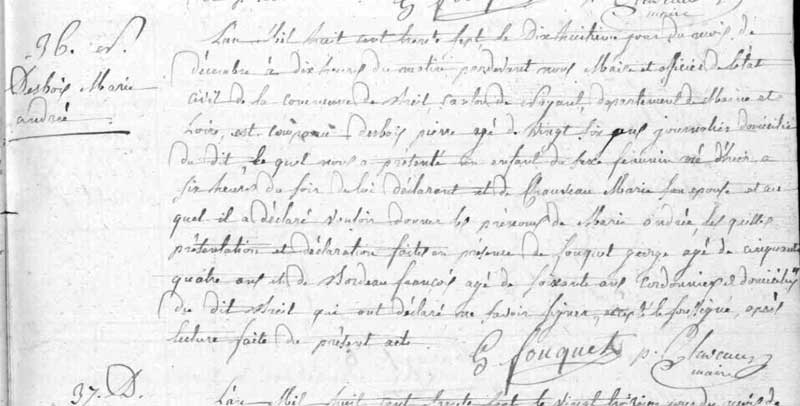 maire
36. N.
Desbois Marie
andrée
L'an Mil huit cent trente sept le Dixhuitième jour du mois de
décembre à dix heures du matin pardevant nous Maire et officier de l'état
civil de la commune de Breil, canton de Noyant, département de Maine et
Loire, est comparu Desbois pierre agé de vingt six ans journalier domicilié
du dit lequel nous a présenté un enfant du sexe féminin né d'hier a
six heures du soir de lui déclarant et de Chauveau Marie son épouse et au
quel il a déclaré vouloir donner les prénoms de Marie andrée, les quelles
présentation et déclaration faites en présence de fouquet george agé de cinquante
quatre ans et de Bordeau françois agé de soixante ans cordonniers domiciliés
du dit Breil qui ont déclaré ne savoir signer, excepté le soussigné, après
lecture faite du présent acte.
G fouquet p.
maire
37. D.
L'an Mil huit cent trente sept le vingt jour du mois de